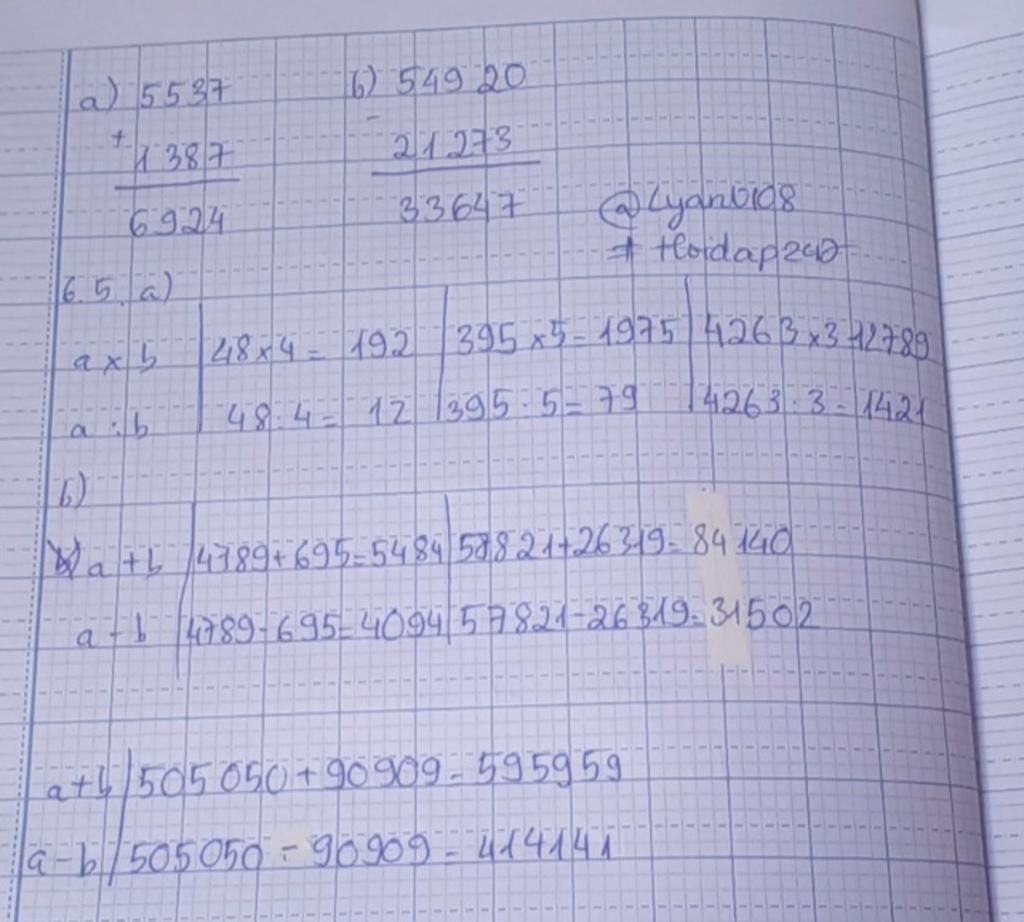 a) 5537 b) 54920
+ 1387 - 21273
6924 33647
@Lyanb108
6.5. a)
a x b 48 x 4 = 192 395 x 5 = 1975 4263 x 3 12789
a : b 48 : 4 = 12 395 : 5 = 79 4263 : 3 = 1421
b)
a + b 4789 + 695 = 5484 57821 + 26319 = 84140
a - b 4789 - 695 = 4094 57821 - 26319 = 31502
a + b 505050 + 90909 = 595959
a - b 505050 - 90909 = 414141